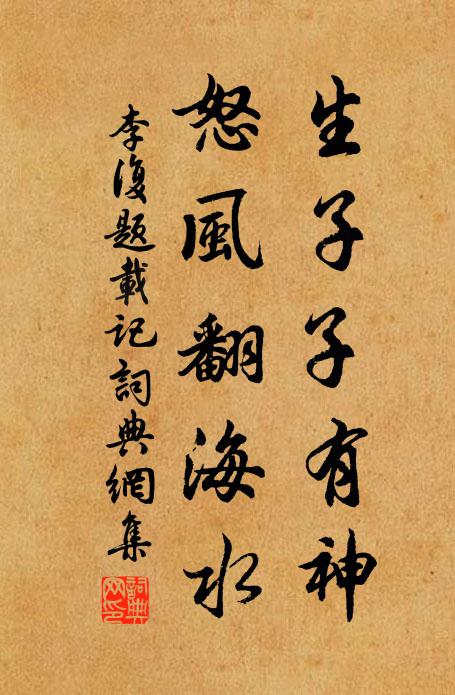 生子子有神
怒風翻海水
李復題載記詞典網集
詞典網印